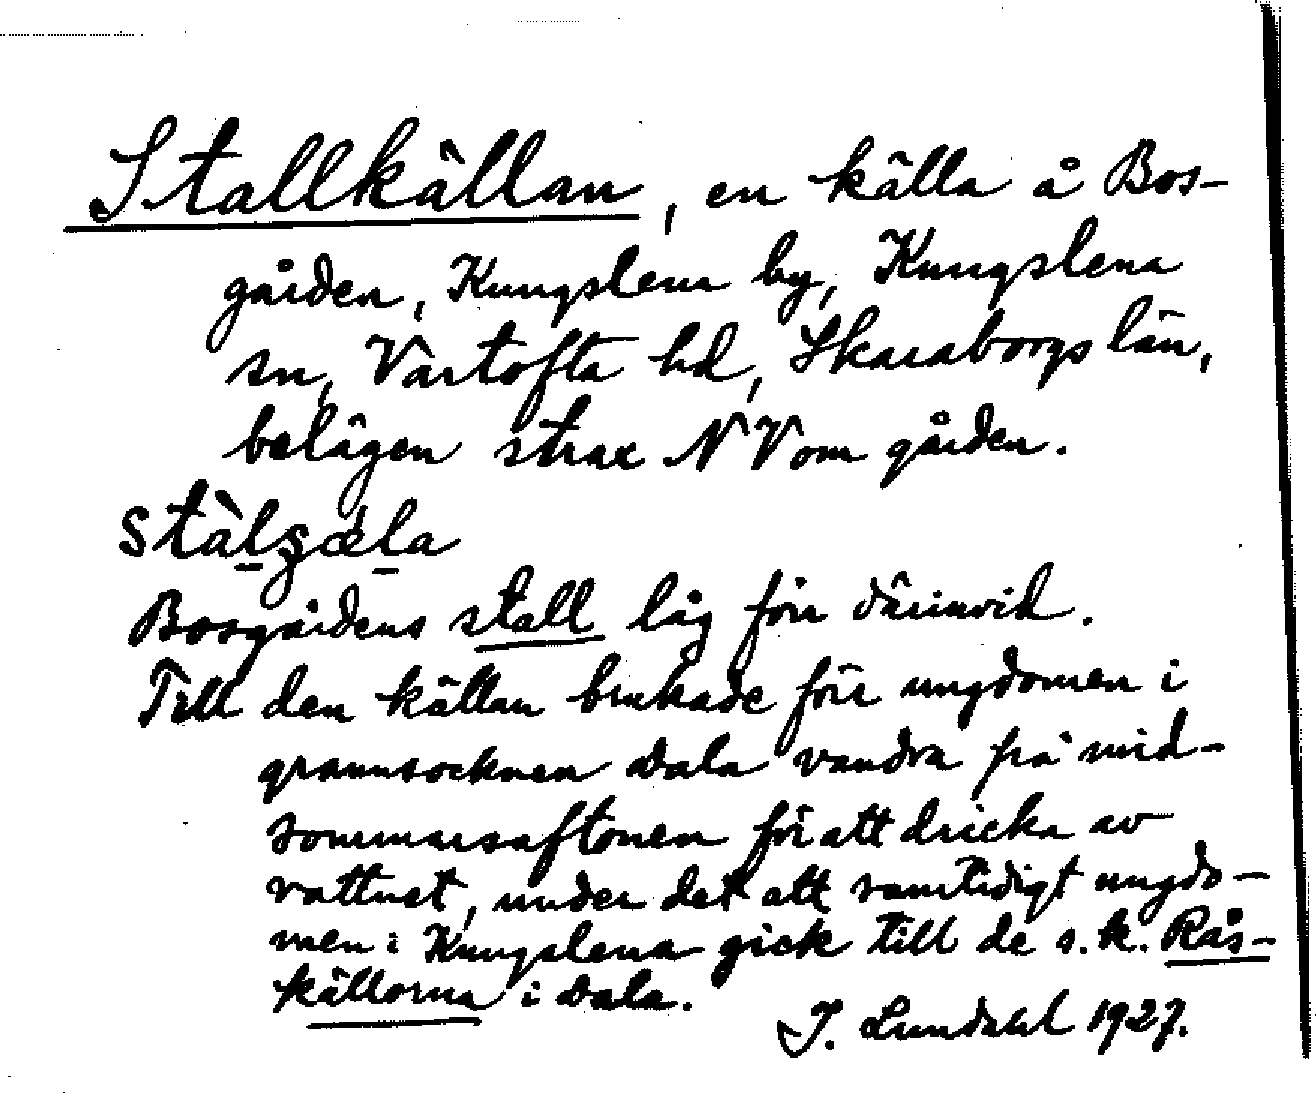 Stallkällan, en källa å Bos-
gården, Kungslena by, Kungslena
sn, Vartofta hd, Skaraborgs län,
belägen strax NV om gården.
stàlʒǽla
Bosgårdens stall låg förr därinvid.
Till den källan brukade förr ungdomen i
grannsocknen Dala vandra på mid-
sommarsaftonen för att dricka av
vattnet, under det att samtidigt ungdo-
men i Kungslena gick till de s.k. Rås-
källorna i Dala.
I. Lundahl 1927.